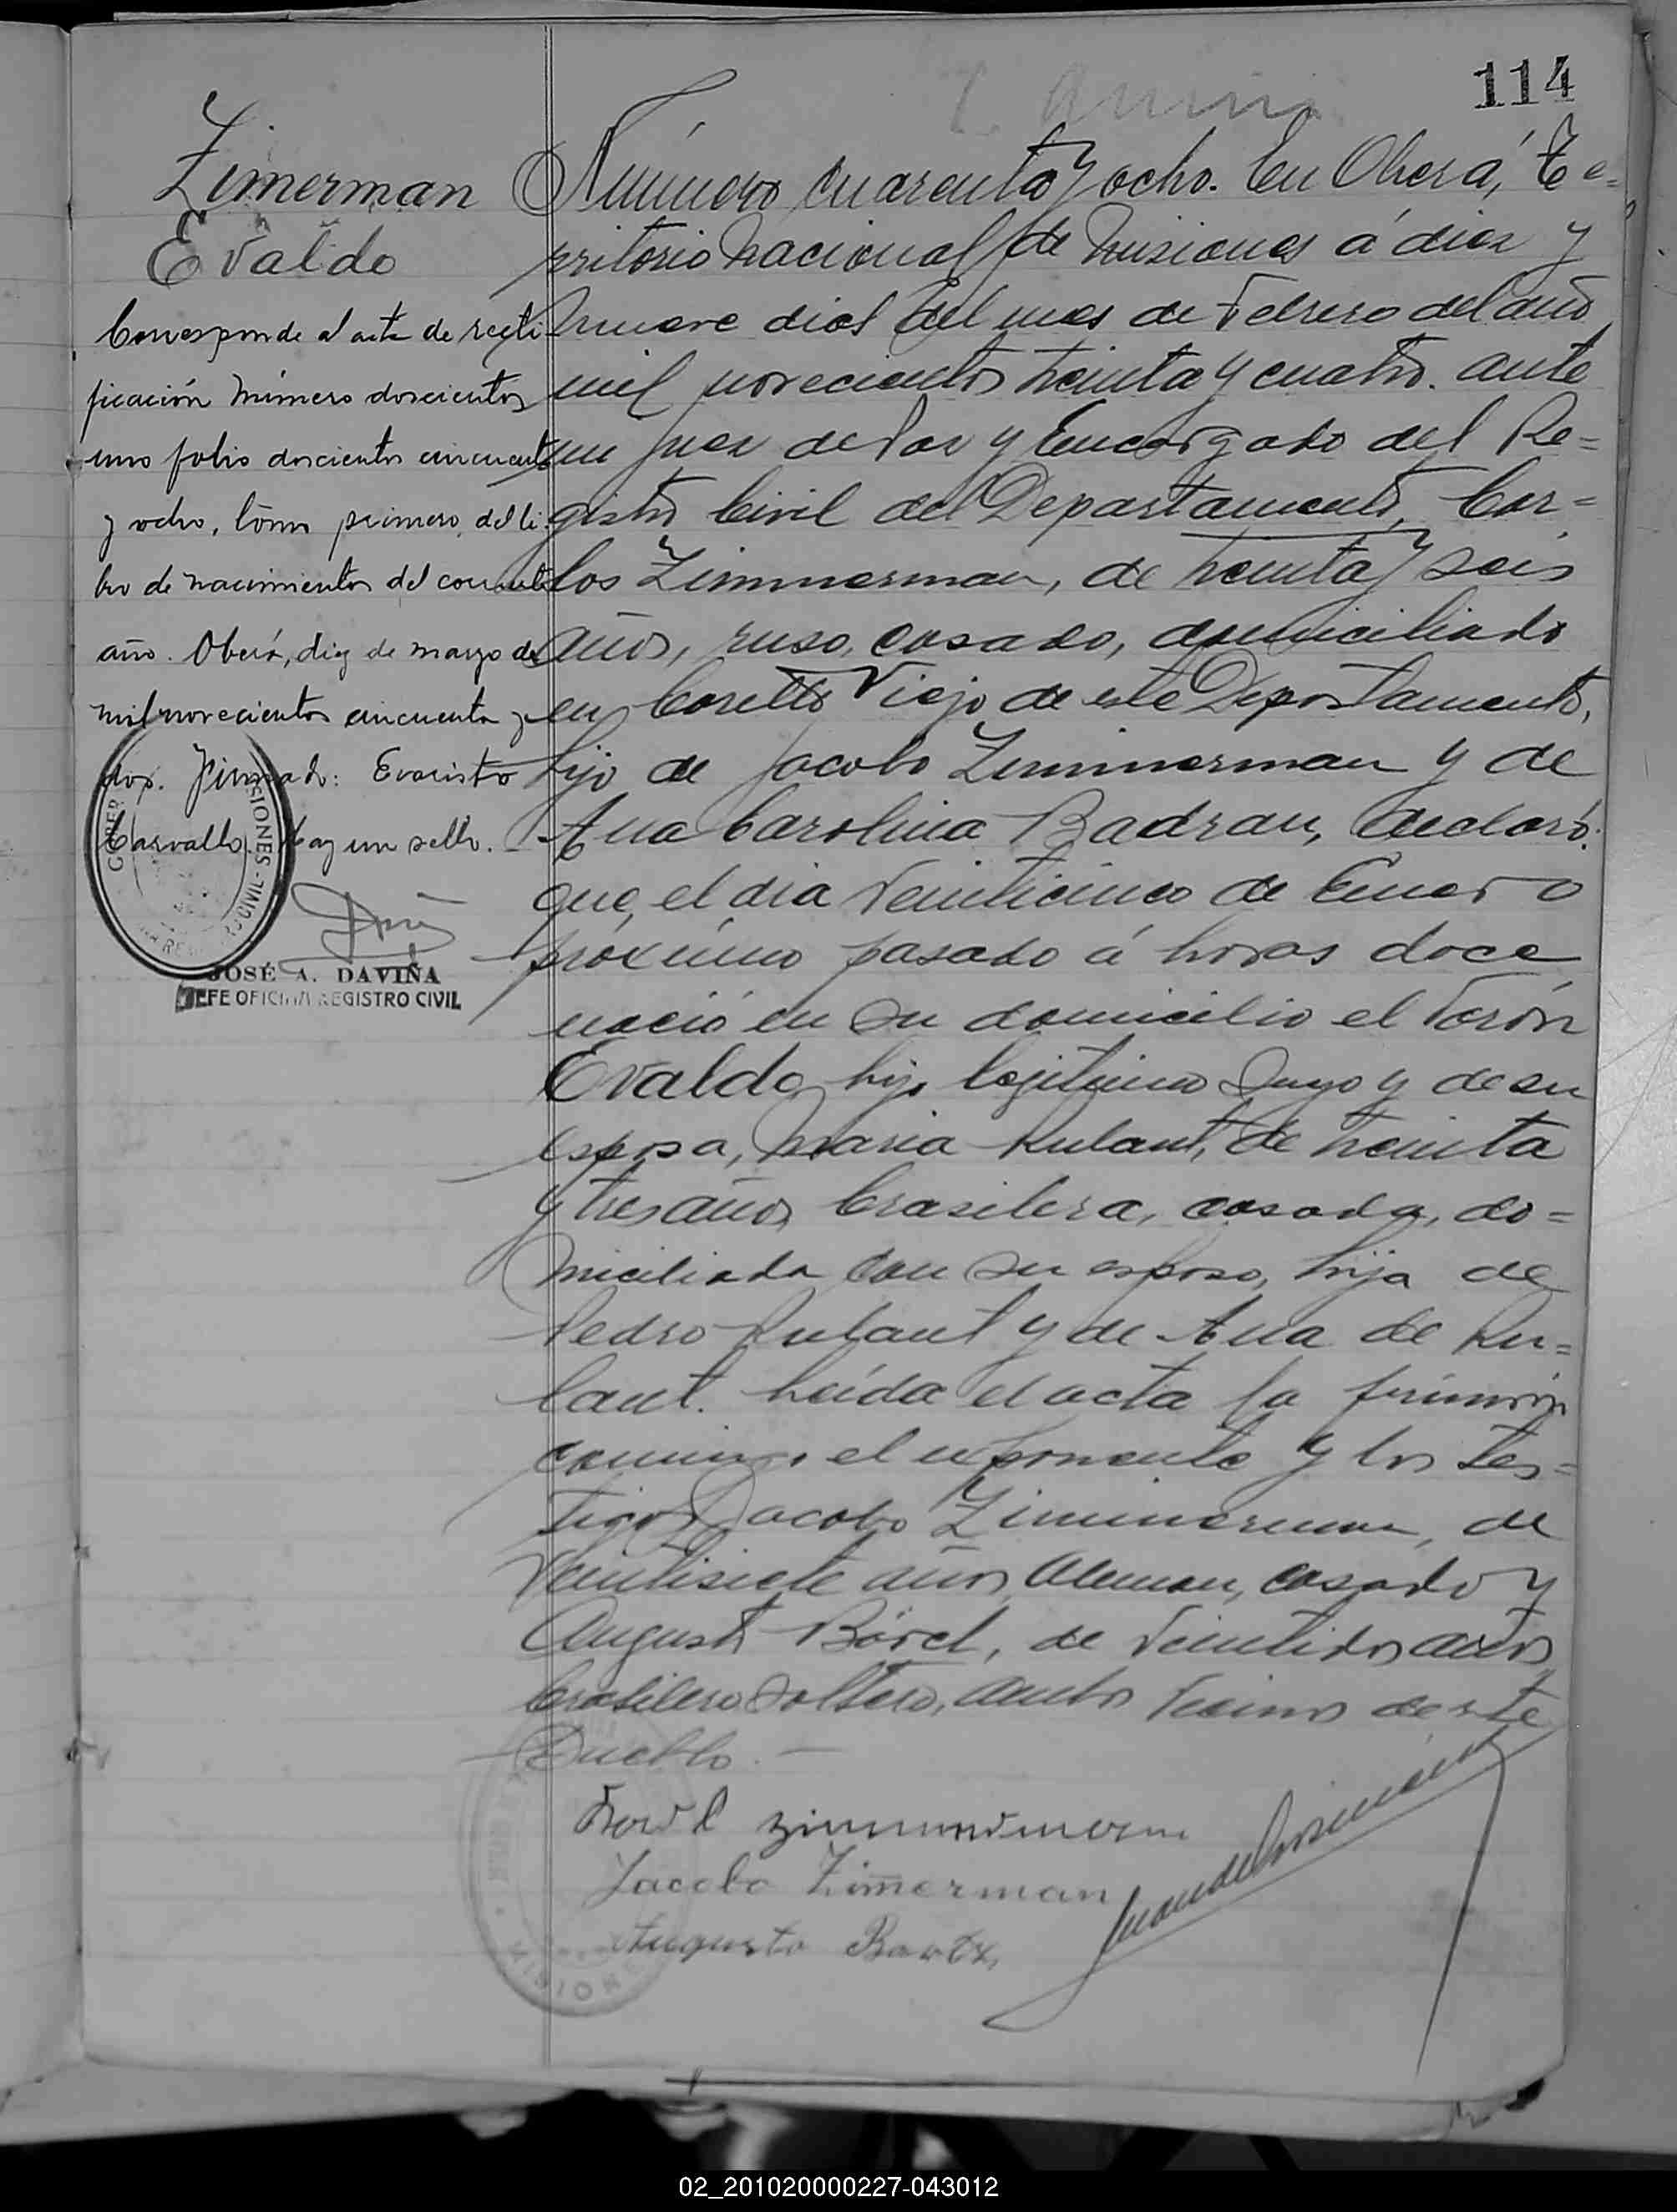 114
Zimerman
Evaldo
Corresponde al acta de recti
ficación número doscientos
uno folio doscientos cincuenta
y ocho, tomo primero, del li-
bro de nacimientos del corriente
año. Oberá, diez de marzo de
mil novecientos cincuenta y
dos. Firmado: Evaristo
Carvallo. Hay un sello.
JOSÉ A. DAVIÑA
JEFE OFICINA REGISTRO CIVIL
Número cuarenta y ocho. En Oberá, Te=
rritorio Nacional de Misiones á diez y
nueve dias del mes de Febrero del año
mil novecientos treinta y cuatro. ante
mi Juez de Paz y Encargado del Re=
gistro Civil del Departamento, Car=
los Zimmerman, de treinta y seis
años, ruso, casado, domiciliado
en Viejo de este Departamento,
hijo de Jacobo Zimmerman y de
Ana Carolina Badran, declaró:
que, el dia veinticinco de Enero
próximo pasado á horas doce
nació en su domicilio el varón
Evaldo, hijo legitimo suyo y de su
esposa, Maria Rulant, de treinta
y tres años, brasilera, casada, do=
miciliada con su esposo, hija de
Pedro Rulant y de Ana de Ru=
lant. Leída el acta la firmaron
conmigo el exponente y los tes=
tigos Jacobo Zimmerman, de
veintisiete años, Aleman, casado y
Augusto de veintidos años
brasilero soltero, ambos vecinos de este
Pueblo. —
Jacobo Zimerman
Augusto
MISIONES